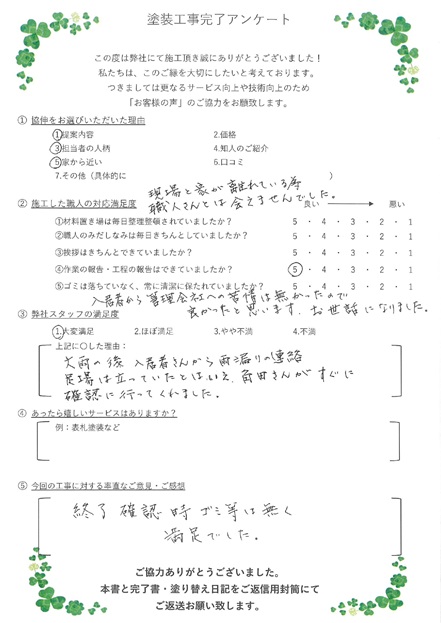 塗装工事完了アンケート
この度は弊社にて施工頂き誠にありがとうございました！
私たちは、このご縁を大切にしたいと考えております。
つきましては更なるサービス向上や技術向上のため
「お客様の声」のご協力をお願致します。
① 協伸をお選びいただいた理由
1.提案内容 2.価格
3.担当者の人柄 4.知人のご紹介
5.家から近い 6.口コミ
7.その他（具体的に ）
現場と家が離れている為
職人さんとは会えませんでした。
② 施工した職人の対応満足度 良い 悪い
①材料置き場は毎日整理整頓されていましたか？ 5 ・ 4 ・ 3 ・ 2 ・ 1
②職人のみだしなみは毎日きちんとしていましたか？ 5 ・ 4 ・ 3 ・ 2 ・ 1
③挨拶はきちんとできていましたか？ 5 ・ 4 ・ 3 ・ 2 ・ 1
④作業の報告・工程の報告はできていましたか？ 5 ・ 4 ・ 3 ・ 2 ・ 1
⑤ゴミは落ちていなく、常に清潔に保たれていましたか？ 5 ・ 4 ・ 3 ・ 2 ・ 1
入居者から管理会社への苦情は無かったので
良かったと思います。お世話になりました。
③ 弊社スタッフの満足度
1.大変満足 2.ほぼ満足 3.やや不満 4.不満
上記に〇した理由：
大雨の後 入居者さんから雨漏りの連絡
足場は立っていたとはいえ、角田さんがすぐに
確認に行ってくれました。
④ あったら嬉しいサービスはありますか？
例：表札塗装など
⑤ 今回の工事に対する率直なご意見・ご感想
終了確認時ゴミ等は無く
満足でした。
ご協力ありがとうございました。
本書と完了書・塗り替え日記をご返信用封筒にて
ご返送お願い致します。